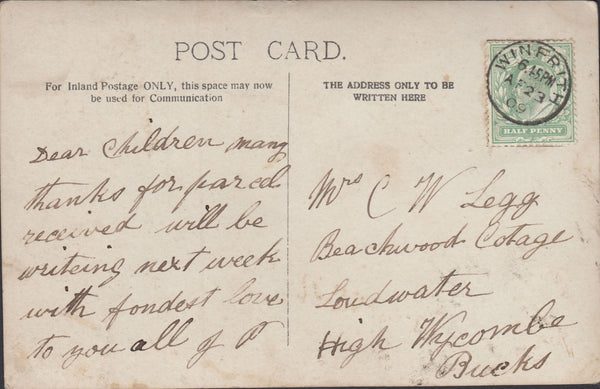 POST CARD.
For Inland Postage ONLY, this space may now
be used for Communication
THE ADDRESS ONLY TO BE
WRITTEN HERE
WINFRITH
6.15PM
AP 23
09
HALF PENNY
Dear Children many
thanks for parcel
received will be
writeing next week
with fondest love
to you all of P
Mrs C W Legg
Beachwood Cotage
Loudwater
High Wycombe
Bucks